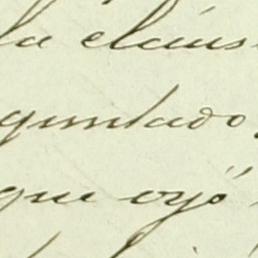 la cláus
guntado
que oyó"